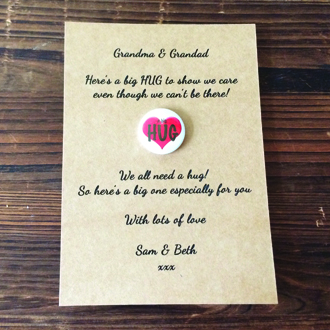 Grandma & Grandad
Here's a big HUG to show we care
even though we can't be there!
HUG
We all need a hug!
So here's a big one especially for you
With lots of love
Sam & Beth
xxx